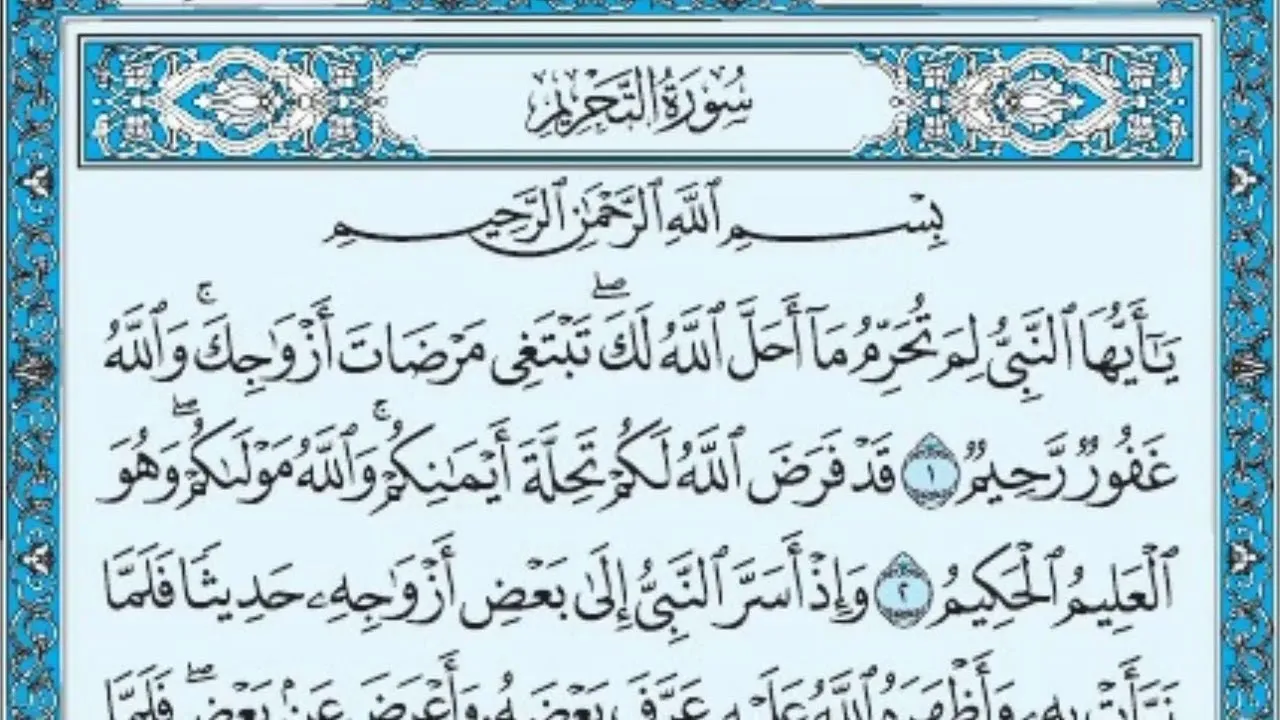 سُورَةُ التَّحْرِيمِ
بِسْمِ ٱللَّهِ ٱلرَّحْمَٰنِ ٱلرَّحِيمِ
يَٰٓأَيُّهَا ٱلنَّبِيُّ لِمَ تُحَرِّمُ مَآ أَحَلَّ ٱللَّهُ لَكَ ۖ تَبْتَغِى مَرْضَاتَ أَزْوَٰجِكَ ۚ وَٱللَّهُ
غَفُورٌ رَّحِيمٌ ١ قَدْ فَرَضَ ٱللَّهُ لَكُمْ تَحِلَّةَ أَيْمَٰنِكُمْ ۚ وَٱللَّهُ مَوْلَىٰكُمْ ۖ وَهُوَ
ٱلْعَلِيمُ ٱلْحَكِيمُ ٢ وَإِذْ أَسَرَّ ٱلنَّبِيُّ إِلَىٰ بَعْضِ أَزْوَٰجِهِۦ حَدِيثًا فَلَمَّا
نَبَّأَتْ بِهِۦ وَأَظْهَرَهُ ٱللَّهُ عَلَيْهِ عَرَّفَ بَعْضَهُۥ وَأَعْرَضَ عَنۢ بَعْضٍ ۖ فَلَمَّا